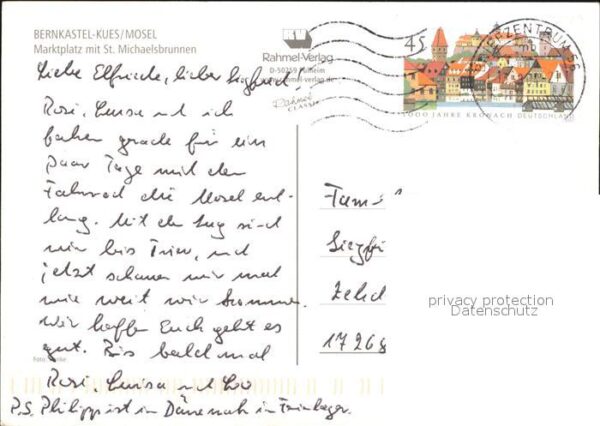 BERNKASTEL-KUES/MOSEL
Marktplatz mit St. Michaelsbrunnen
Rahmel-Verlag
D-50259 Pulheim
www.rahmel-verlag.de
Rahmel
CLASSIC
45
BRIEFZENTRUM 56
1000 JAHRE KRONACH DEUTSCHLAND
Liebe Elfriede, lieber Siegfried!
Rosi, Luisa und ich
fahren grade für ein
paar Tage mit dem
Fahrrad die Mosel ent-
lang. Mit dem Zug sind
wir bis Trier, und
jetzt schauen wir mal
wie weit wir kommen.
Wir hoffen Euch geht es
gut. Bis bald mal
Rosi, Luisa und
P.S. Philipp ist in Dänemark im Ferienlager.
Fam
Siegfri
Zehd
17268
privacy protection
Datenschutz
Foto: